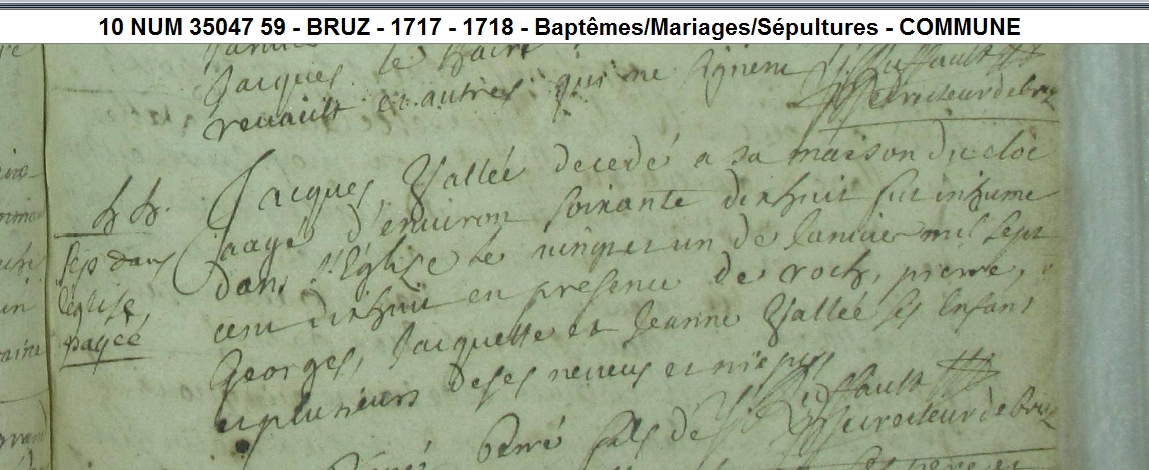 10 NUM 35047 59 - BRUZ - 1717 - 1718 - Baptêmes/Mariages/Sépultures - COMMUNE
Jacques le
renault et autres qui ne signent
recteur de bruz
Jacques Vallée decedé a sa maison du clos
aagé d'environ soixante dix huit fut inhumé
dans l'Eglise le vingt et un de Janvier mil sept
cent dix huit en presence de roch, pierre,
Georges, Jacquette et Jeanne Vallée ses Enfans
et plusieurs de ses neveus et nieces
recteur de bruz
sep dans
l'eglise,
payée
fils de